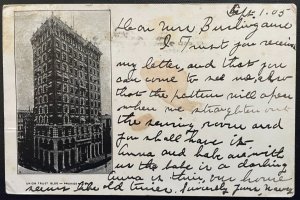 Sept 1.05
Dear Mrs Burlingame
I Trust you receive
my letter, and that you
can come to see us, also
that the pattern will open
when we straighten out
the sewing room and
you shall have it
Emma and babe are with
us the babe is a darling
Emma is thin, our house
seems like old times. Sincerely yours
UNION TRUST BLDG — PROVIDENCE